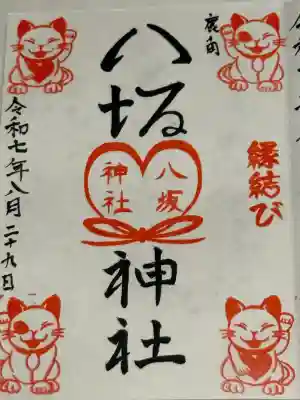 鹿角
八坂神社
八坂
神社
縁結び
令和七年八月二十九日